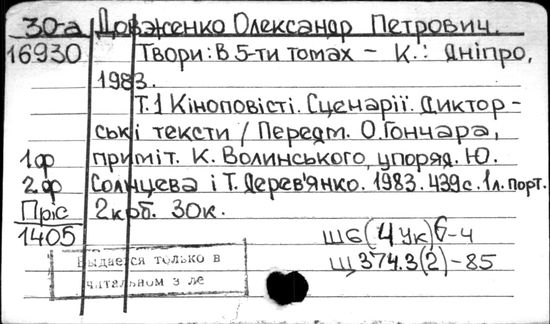 30-а Довженко Олександр Петрович.
16930 Твори: В 5-ти томах - К.: Дніпро,
1983.
Т.1 Кіноповісті. Сценарії. Диктор-
ські тексти / Передм. О.Гончара,
1 ф приміт. К. Волинського, упоряд. Ю.
2 ф Солнцева і Т. Дерев'янко. 1983. 439с. 1л. порт.
Пріс 2крб. 30к.
1405
Ш6(4Ук)6-4
Щ374.3(2)-85
Выдается только в
читальном з ле